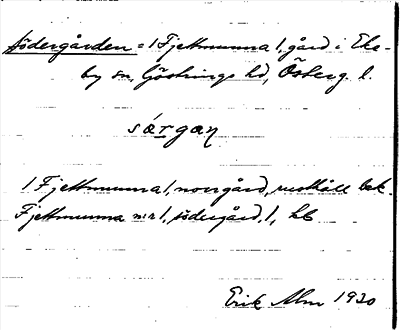 Södergården = 1 Fjettmunna 1, gård i Eke-
by sn, Göstrings hd, Österg. l.
sǿrgaɳ
1 Fjettmunna 1, norrgård, rusthåll bek.
Fjettmunna nr 1, södergård, 1, hb
Erik Alm 1930